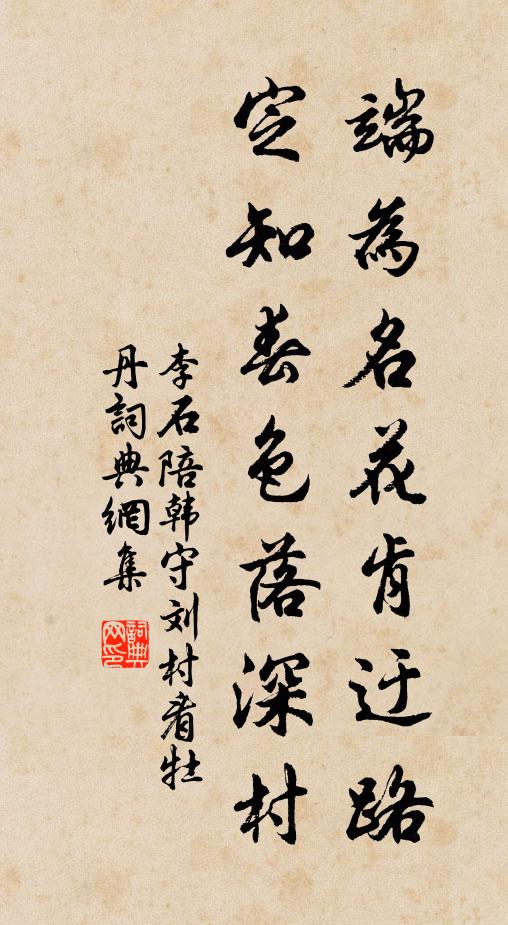 端為名花肯迂路
定知春色落深村
李石陪韩守刘村看牡
丹詞典網集
詞典網印